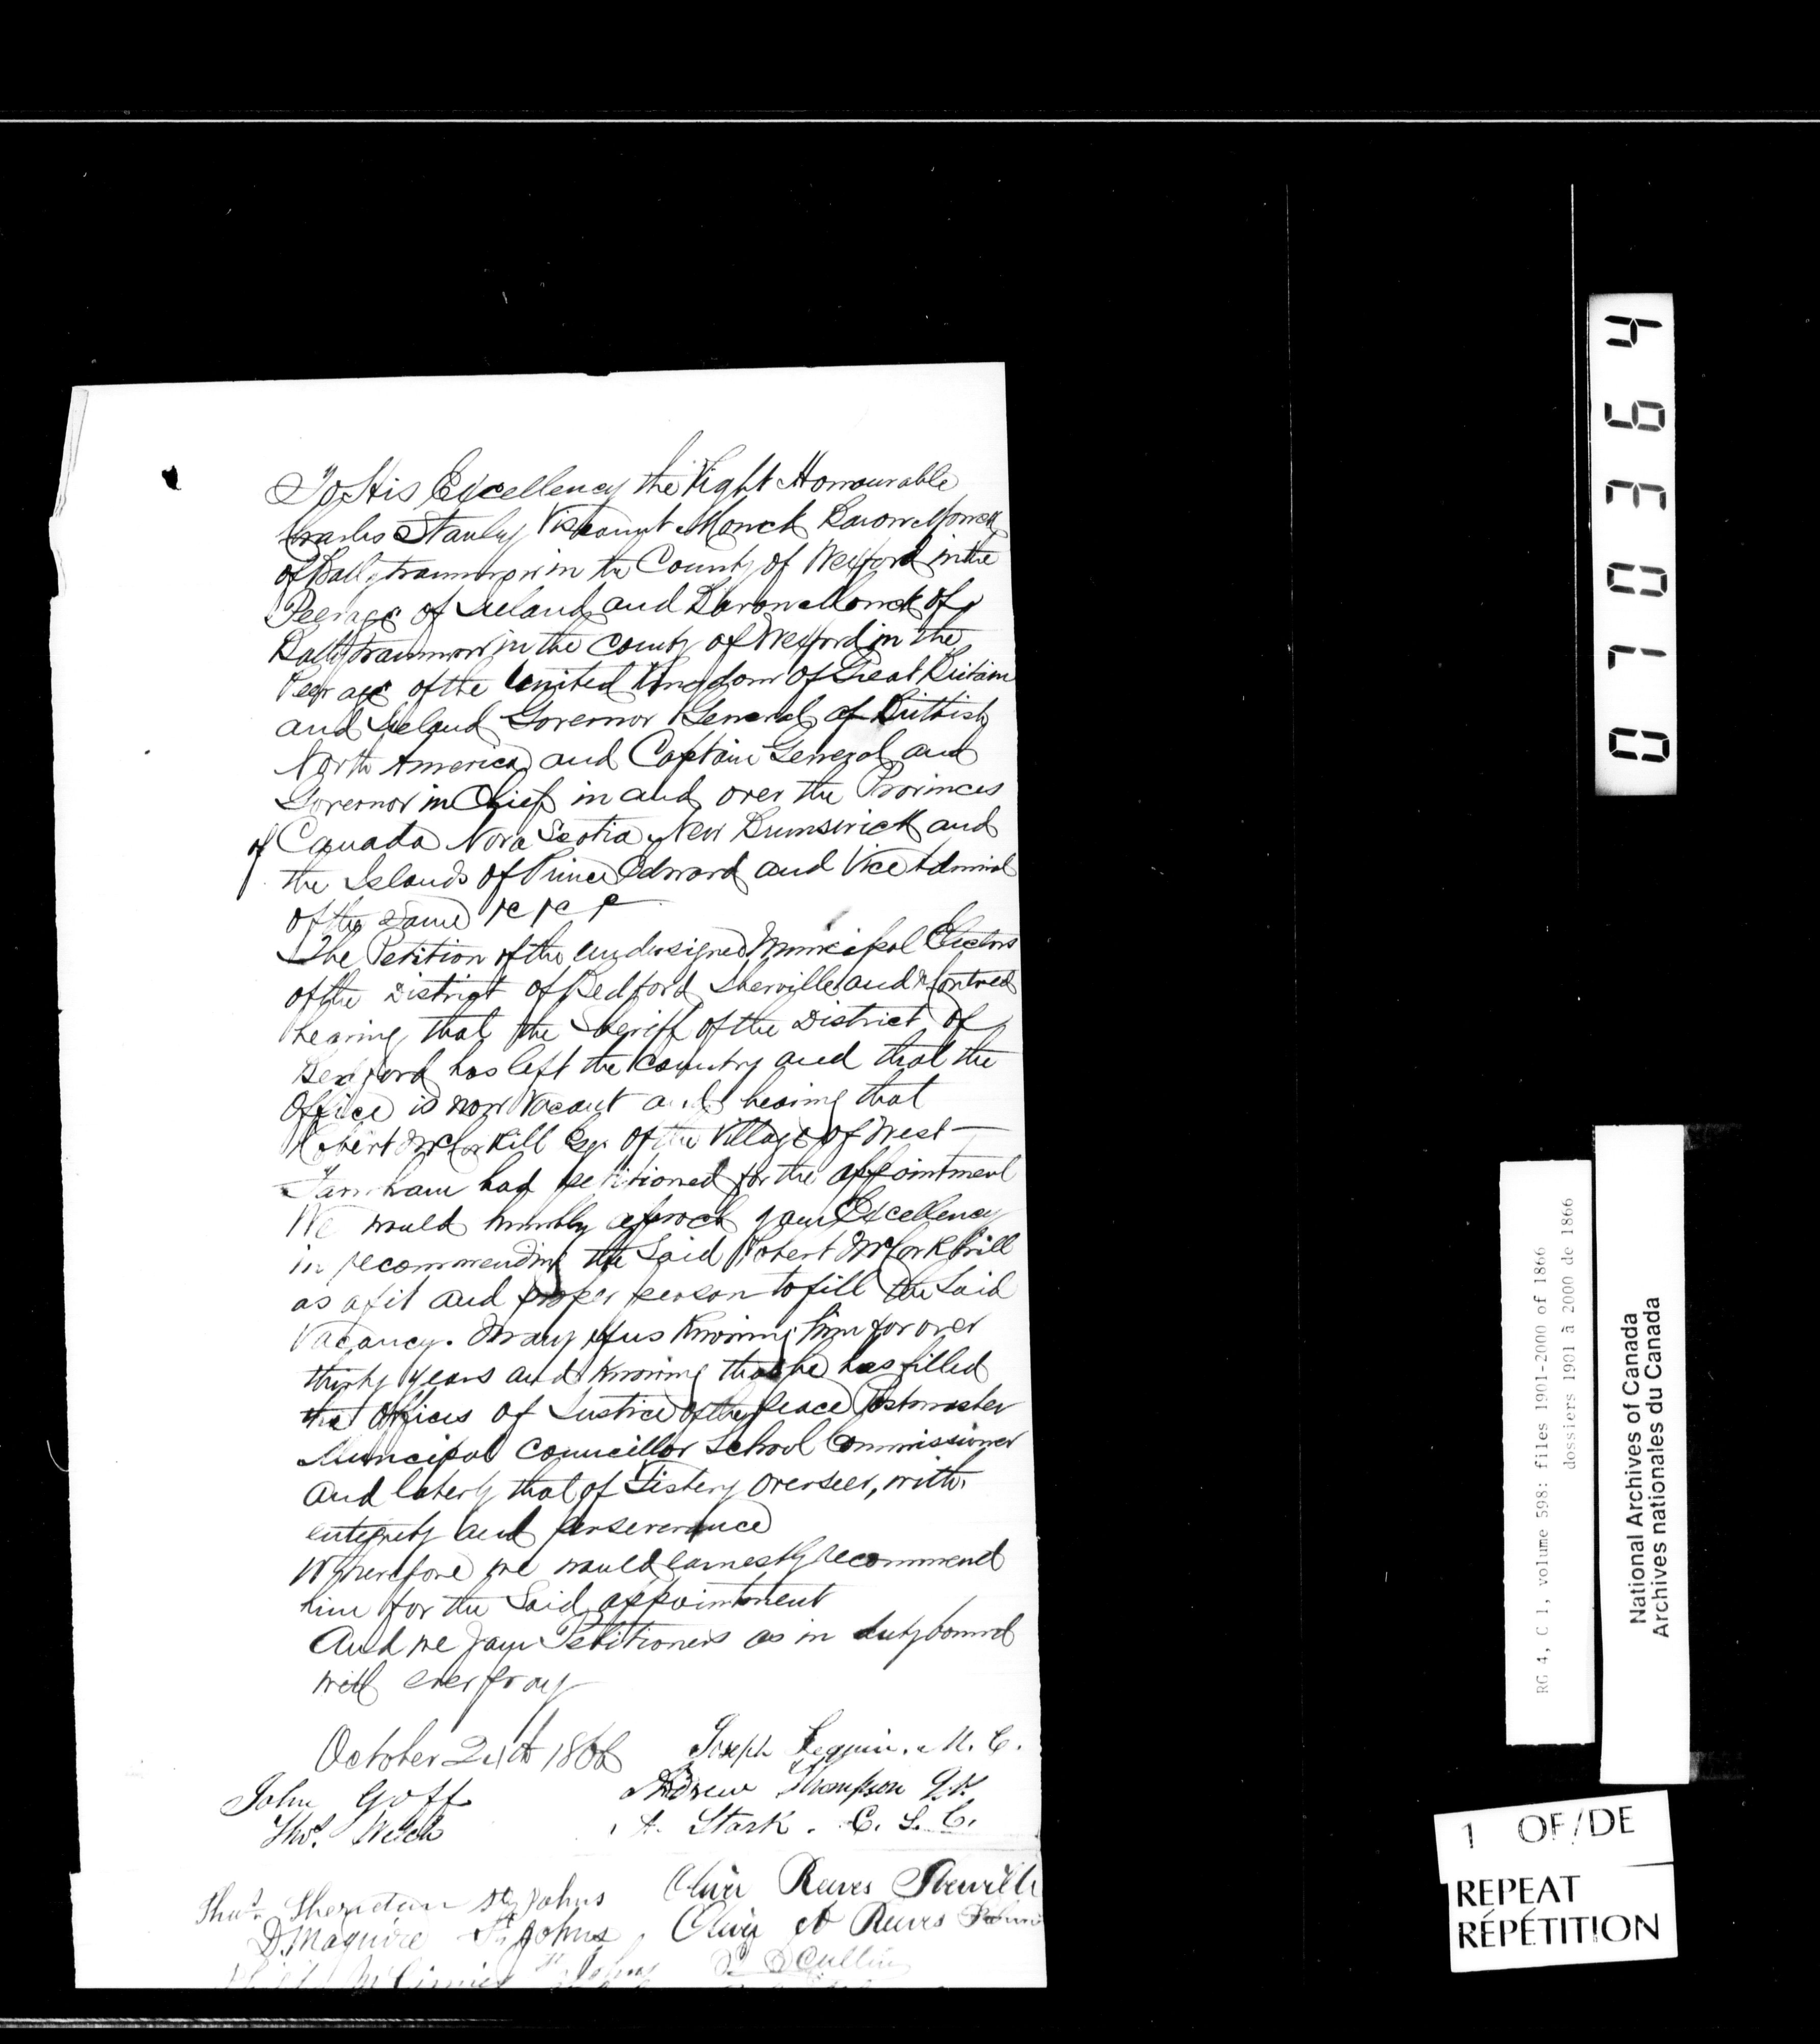 To His Excellency the Right Honourable
Charles Stanley Viscount Monck Baron Monck
of Ballytrammon in the County of Wexford in the
Peerage of Ireland and Baron Monck of
Ballytrammon in the county of Wexford in the
Peerage of the United Kingdom of Great Britain
and Ireland Governor General of Brittish
North America and Captain General and
Governor in Chief in and over the Provinces
of Canada Nova Scotia New Brunswick and
the Islands of Prince Edward and Vice Admiral
of the Same &c &c &
The Petition of the undersigned Municipal Electors
of the District of Bedford Iberville and Montreal
hearing that the Sheriff of the District of
Bedford has left the country and that the
Office is now Vacant and hearing that
Robert McCorkill Esqr of the Village of West
Farnham had petitioned for the appointment
We would humbly aproch your Excellency
in recommending the Said Robert McCorkhill
as a fit and proper person to fill the Said
Vacancy. Many of us Knowing him for over
thirty years and Knowing that he has filled
the Offices of Justice of the peace Postmaster
Municipal Councillor School Commissioner
and laterly that of Fishery Overseer, with
integrity and perseverance
Wherefore we would earnestly recommend
him for the Said appointment
And we your Petitioners as in duty bound
will ever pray
October 24th 1866
Joseph M. C.
John Goff
Andrew Thompson J.P.
Thos. Welch
A. Stark. C. S. C.
Thos. Sheridan St Johns
Oliver Reeves
D. Maguire St Johns
Oliver Reeves
McGinnis St Johns
Cullin
070364
RG 4, C 1, volume 598: files 1901-2000 of 1866
dossiers 1901 à 2000 de 1866
National Archives of Canada
Archives nationales du Canada
1 OF/DE
REPEAT
RÉPÉTITION